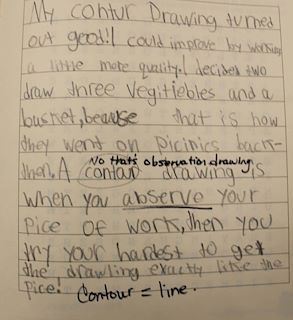 My contur Drawing turned
out good! I could improve by working
a little more quality. I decided two
draw three vegitiebles and a
busket, beause that is how
they went on picinics back-
then. A contour drawing is
No that's observation drawing
when you abserve your
pice of work, then you
try your hardest to get
the drawling exactly like the
pice!
Contour = line.